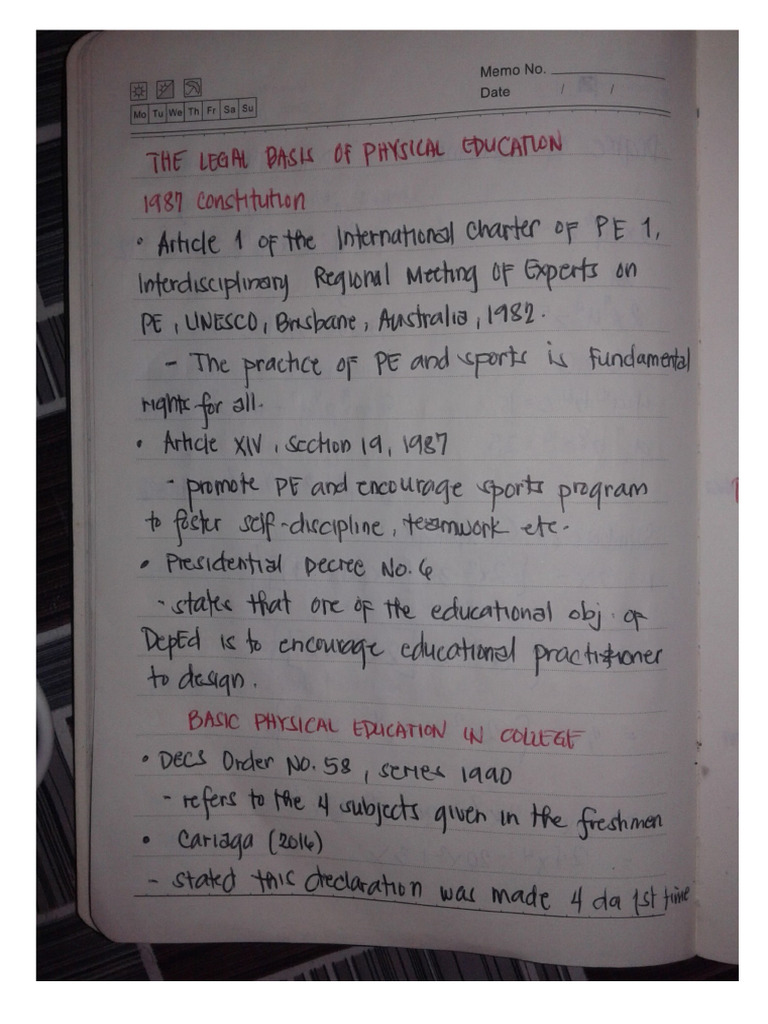 Memo No.
Date / /
Mo Tu We Th Fr Sa Su
THE LEGAL BASIS OF PHYSICAL EDUCATION
1987 Constitution
• Article 1 of the International Charter of PE 1,
Interdisciplinary Regional Meeting of Experts on
PE, UNESCO, Brisbane, Australia, 1982.
- The practice of PE and sports is fundamental
rights for all.
• Article XIV, Section 19, 1987
- promote PE and encourage sports program
to foster self-discipline, teamwork etc.
• Presidential Decree No. 6
- states that one of the educational obj. of
DepEd is to encourage educational practitioner
to design.
BASIC PHYSICAL EDUCATION IN COLLEGE
• DECS Order No. 58, series 1990
- refers to the 4 subjects given in the freshmen
• Cariaga (2016)
- stated this declaration was made 4 da 1st time